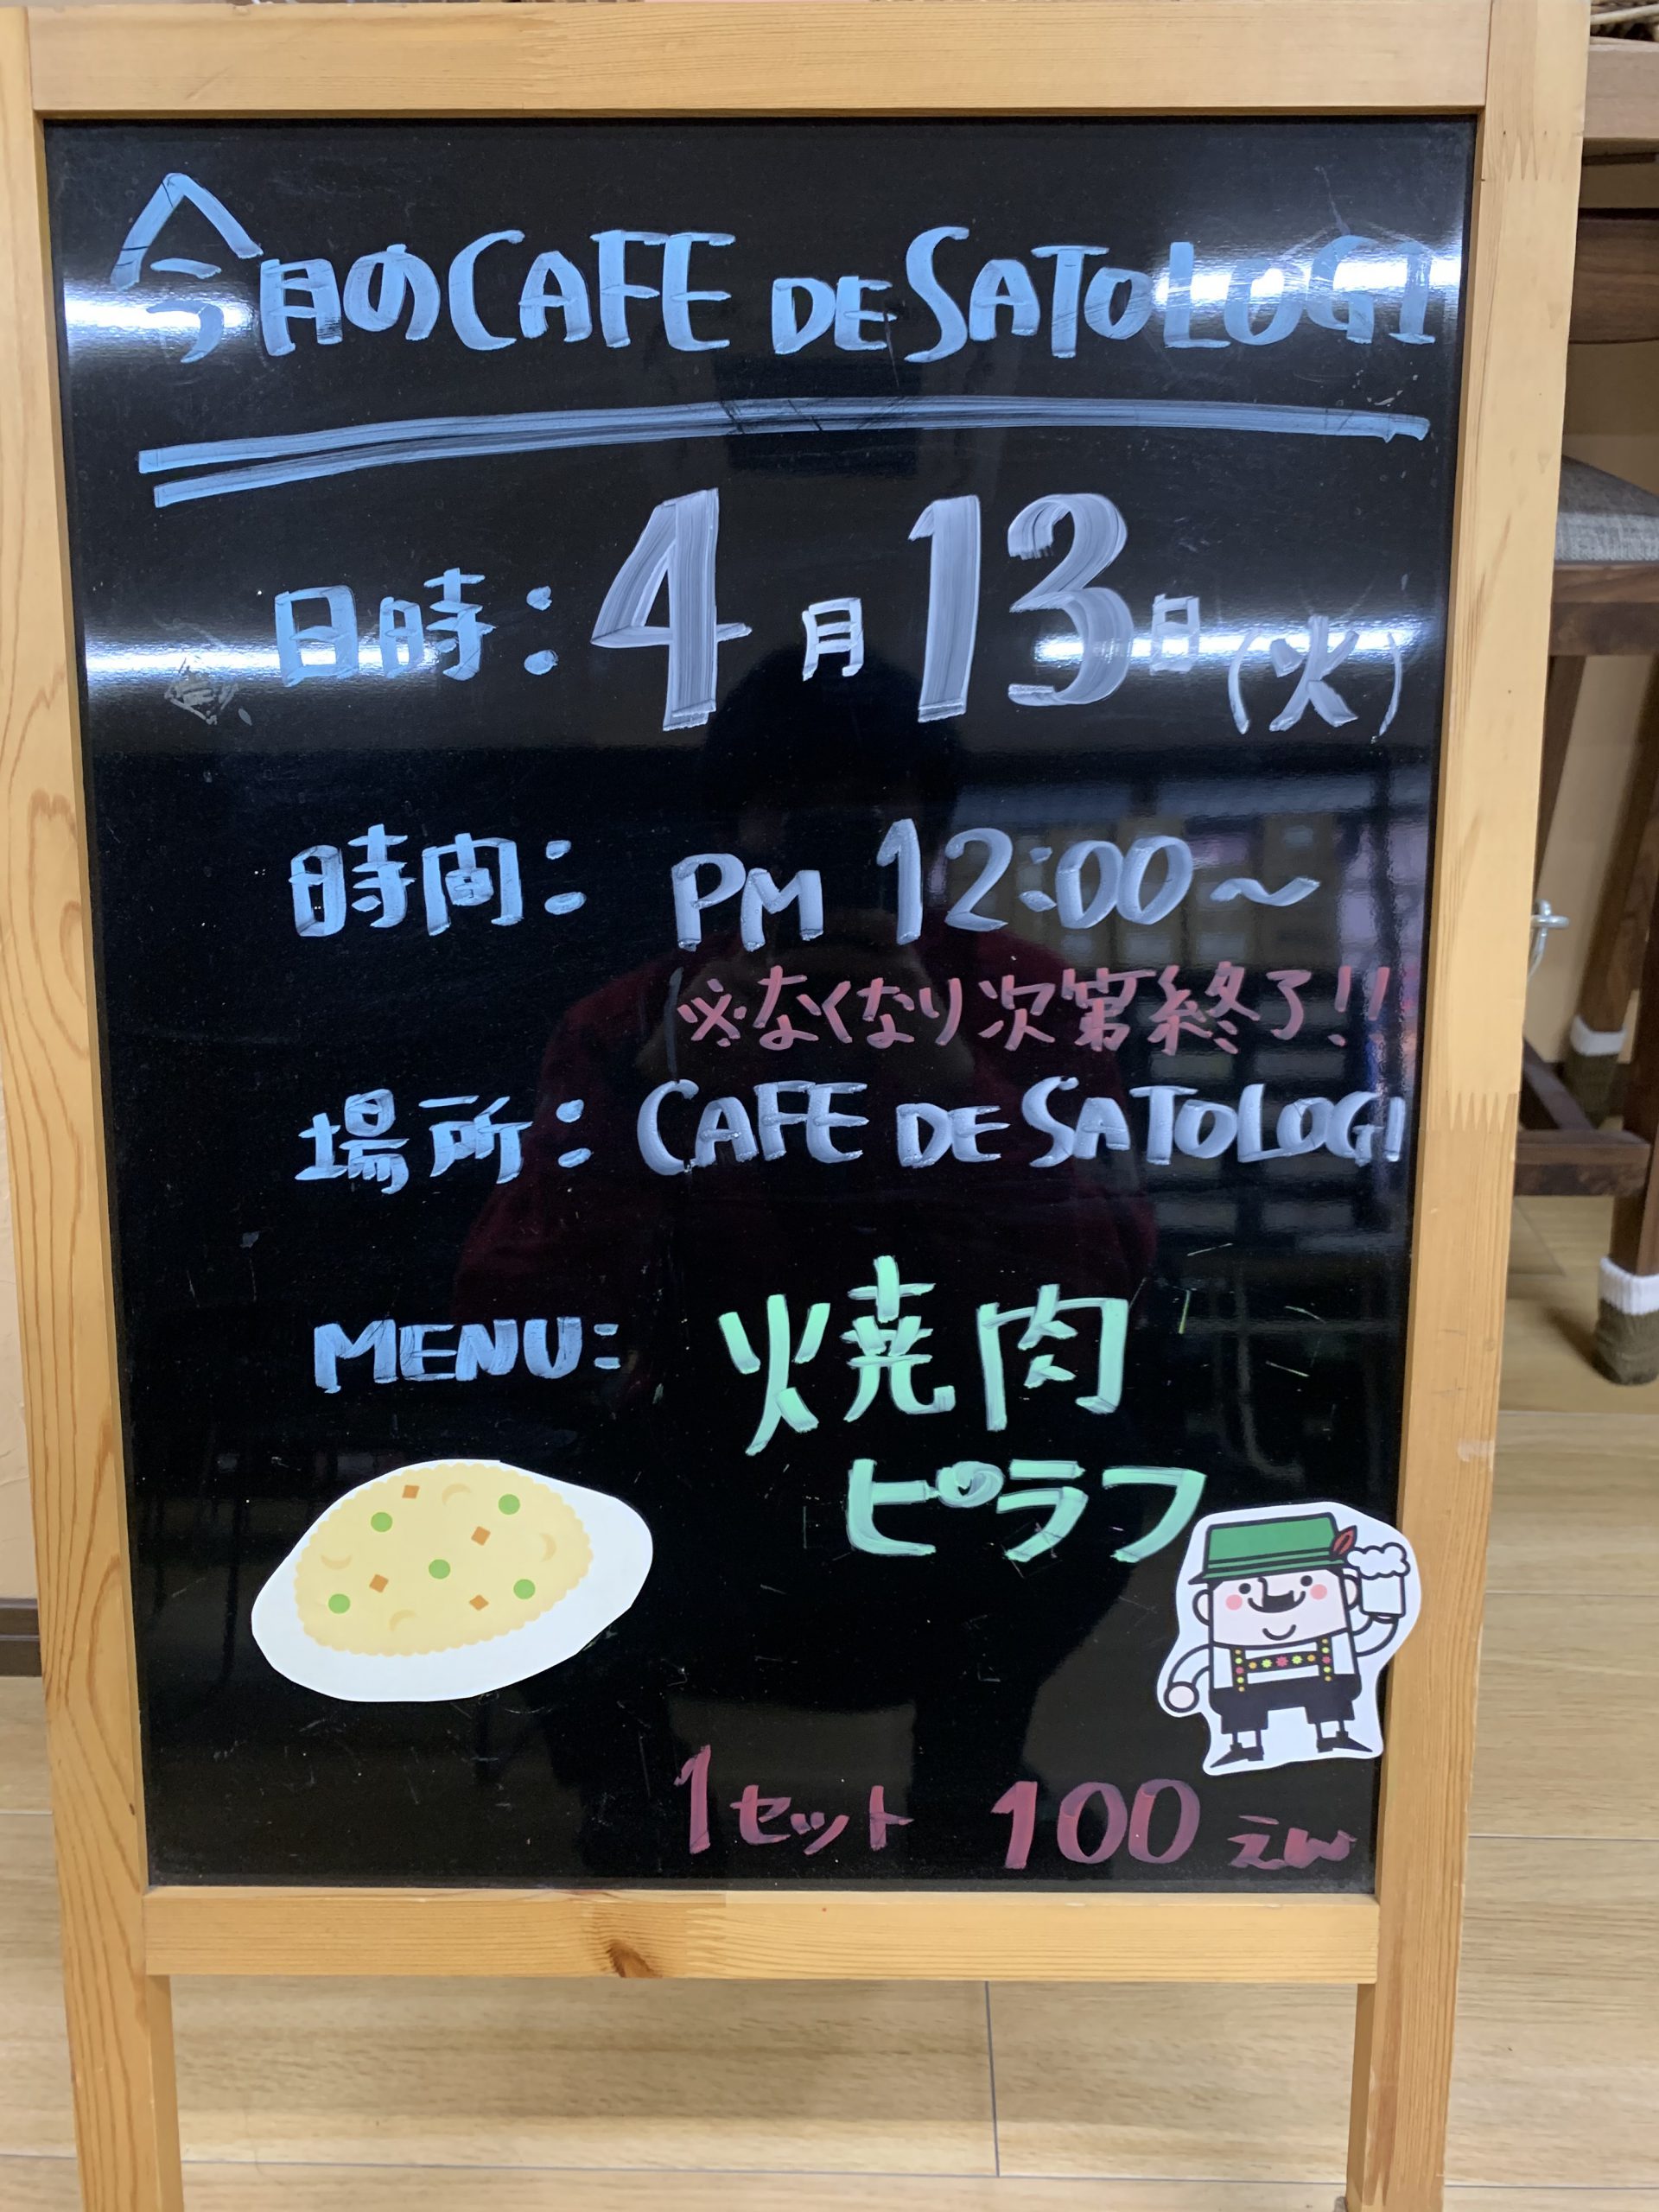 今月のCAFE DE SATOLOGI
日時：4月13日(火)
時間：PM 12:00〜
※なくなり次第終了!!
場所：CAFE DE SATOLOGI
MENU：焼肉
ピラフ
1セット 100えん